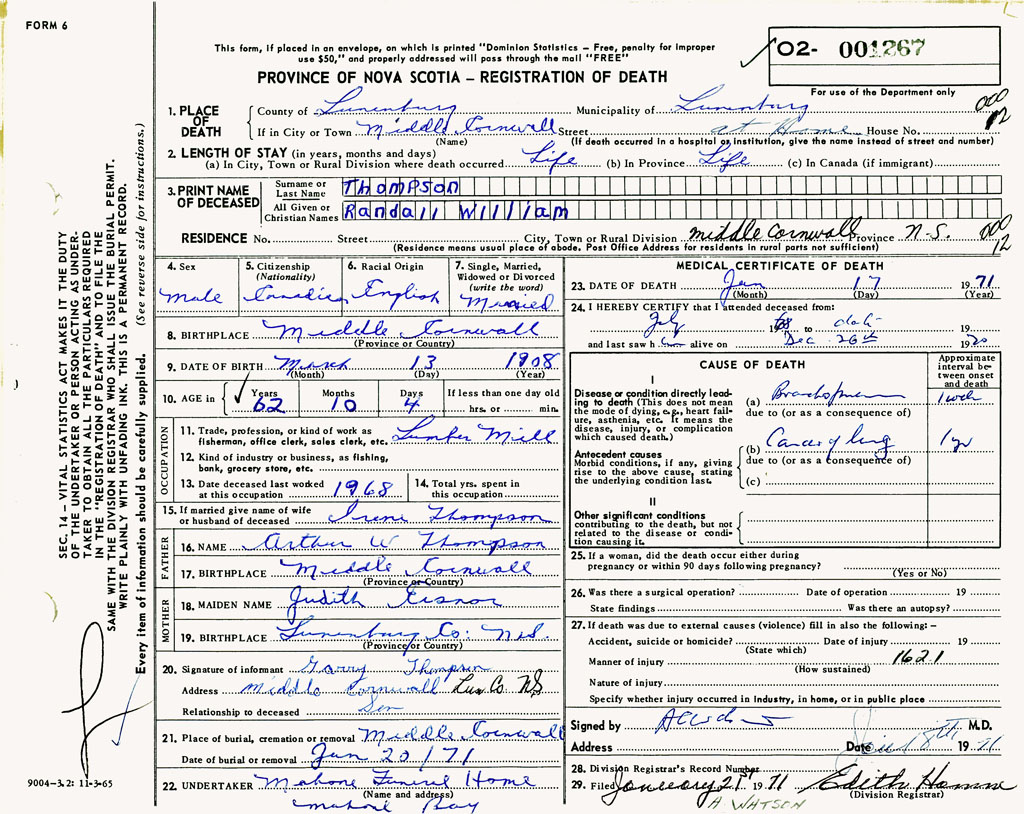 FORM 6
This form, if placed in an envelope, on which is printed "Dominion Statistics – Free, penalty for improper
use $50," and properly addressed will pass through the mail "FREE"
PROVINCE OF NOVA SCOTIA – REGISTRATION OF DEATH
02- 001267
For use of the Department only
1. PLACE OF DEATH County of Lunenburg Municipality of Lunenburg
If in City or Town Middle Cornwall Street at Home House No.
(Name) (If death occurred in a hospital or institution, give the name instead of street and number)
2. LENGTH OF STAY (in years, months and days)
(a) In City, Town or Rural Division where death occurred Life (b) In Province Life (c) In Canada (if immigrant)
3. PRINT NAME OF DECEASED
Surname or Last Name Thompson
All Given or Christian Names Randall William
RESIDENCE No. Street City, Town or Rural Division middle Cornwall Province N.S.
(Residence means usual place of abode. Post Office Address for residents in rural parts not sufficient)
SEC. 14 – VITAL STATISTICS ACT MAKES IT THE DUTY
OF THE UNDERTAKER OR PERSON ACTING AS UNDER-
TAKER TO OBTAIN ALL THE PARTICULARS REQUIRED
IN THE "REGISTRATION OF DEATH" AND TO FILE THE
SAME WITH THE DIVISION REGISTRAR WHO SHALL ISSUE THE BURIAL PERMIT.
WRITE PLAINLY WITH UNFADING INK. THIS IS A PERMANENT RECORD.
Every item of information should be carefully supplied. (See reverse side for instructions.)
4. Sex Male
5. Citizenship (Nationality) Canadian
6. Racial Origin English
7. Single, Married, Widowed or Divorced (write the word) Married
8. BIRTHPLACE Middle Cornwall
(Province or Country)
9. DATE OF BIRTH March 13 1908
(Month) (Day) (Year)
10. AGE in Years 62 Months 10 Days 4 If less than one day old hrs. or min.
OCCUPATION
11. Trade, profession, or kind of work as
fisherman, office clerk, sales clerk, etc. Lumber Mill
12. Kind of industry or business, as fishing,
bank, grocery store, etc.
13. Date deceased last worked at this occupation 1968
14. Total yrs. spent in this occupation
15. If married give name of wife
or husband of deceased Irene Thompson
FATHER
16. NAME Arthur W Thompson
17. BIRTHPLACE Middle Cornwall
(Province or Country)
MOTHER
18. MAIDEN NAME Judith Eisnor
19. BIRTHPLACE Lunenburg Co: N.S.
(Province or Country)
20. Signature of informant Garry Thompson
Address Middle Cornwall Lun Co. NS
Relationship to deceased Son
21. Place of burial, cremation or removal Middle Cornwall
Date of burial or removal Jan 20/71
22. UNDERTAKER Mahone Funeral Home
(Name and address)
Mahone Bay
9004-3.2: 11-3-65
MEDICAL CERTIFICATE OF DEATH
23. DATE OF DEATH Jan 17 1971
(Month) (Day) (Year)
24. I HEREBY CERTIFY that I attended deceased from:
July to date 19
and last saw him alive on Dec 26th 1970
CAUSE OF DEATH
Approximate interval between onset and death
I
Disease or condition directly leading to death (This does not mean
the mode of dying, e.g., heart failure, asthenia, etc. It means the
disease, injury, or complication
which caused death.)
(a) 1 week
due to (or as a consequence of)
Antecedent causes
Morbid conditions, if any, giving
rise to the above cause, stating
the underlying condition last.
(b) Cancer of lung 1 yr
due to (or as a consequence of)
(c)
II
Other significant conditions
contributing to the death, but not
related to the disease or condition causing it.
25. If a woman, did the death occur either during
pregnancy or within 90 days following pregnancy?
(Yes or No)
26. Was there a surgical operation? Date of operation 19
State findings Was there an autopsy?
27. If death was due to external causes (violence) fill in also the following: –
Accident, suicide or homicide? Date of injury 19
(State which)
Manner of injury 1621
(How sustained)
Nature of injury
Specify whether injury occurred in industry, in home, or in public place
Signed by M.D.
Address Date 18th 1971
28. Division Registrar's Record Number
29. Filed January 21st 1971 Edith
(Division Registrar)
A WATSON